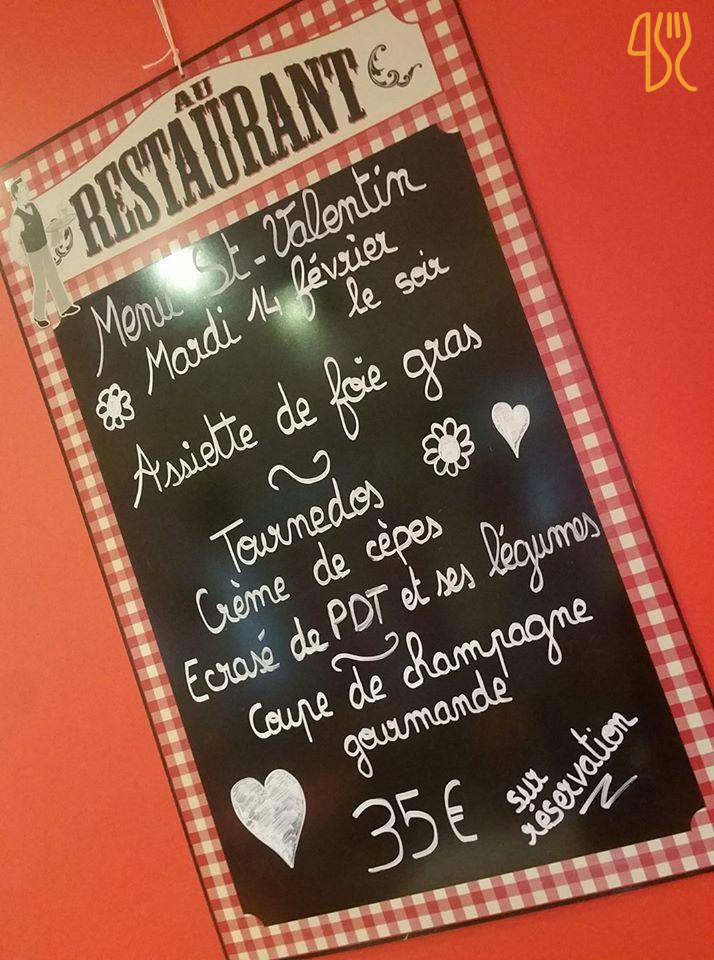 AU
RESTAURANT
Menu St-Valentin
Mardi 14 février
le soir
Assiette de foie gras
Tournedos
Crème de cèpes
Ecrasé de PDT et ses légumes
Coupe de champagne
gourmande
35€
sur
réservation